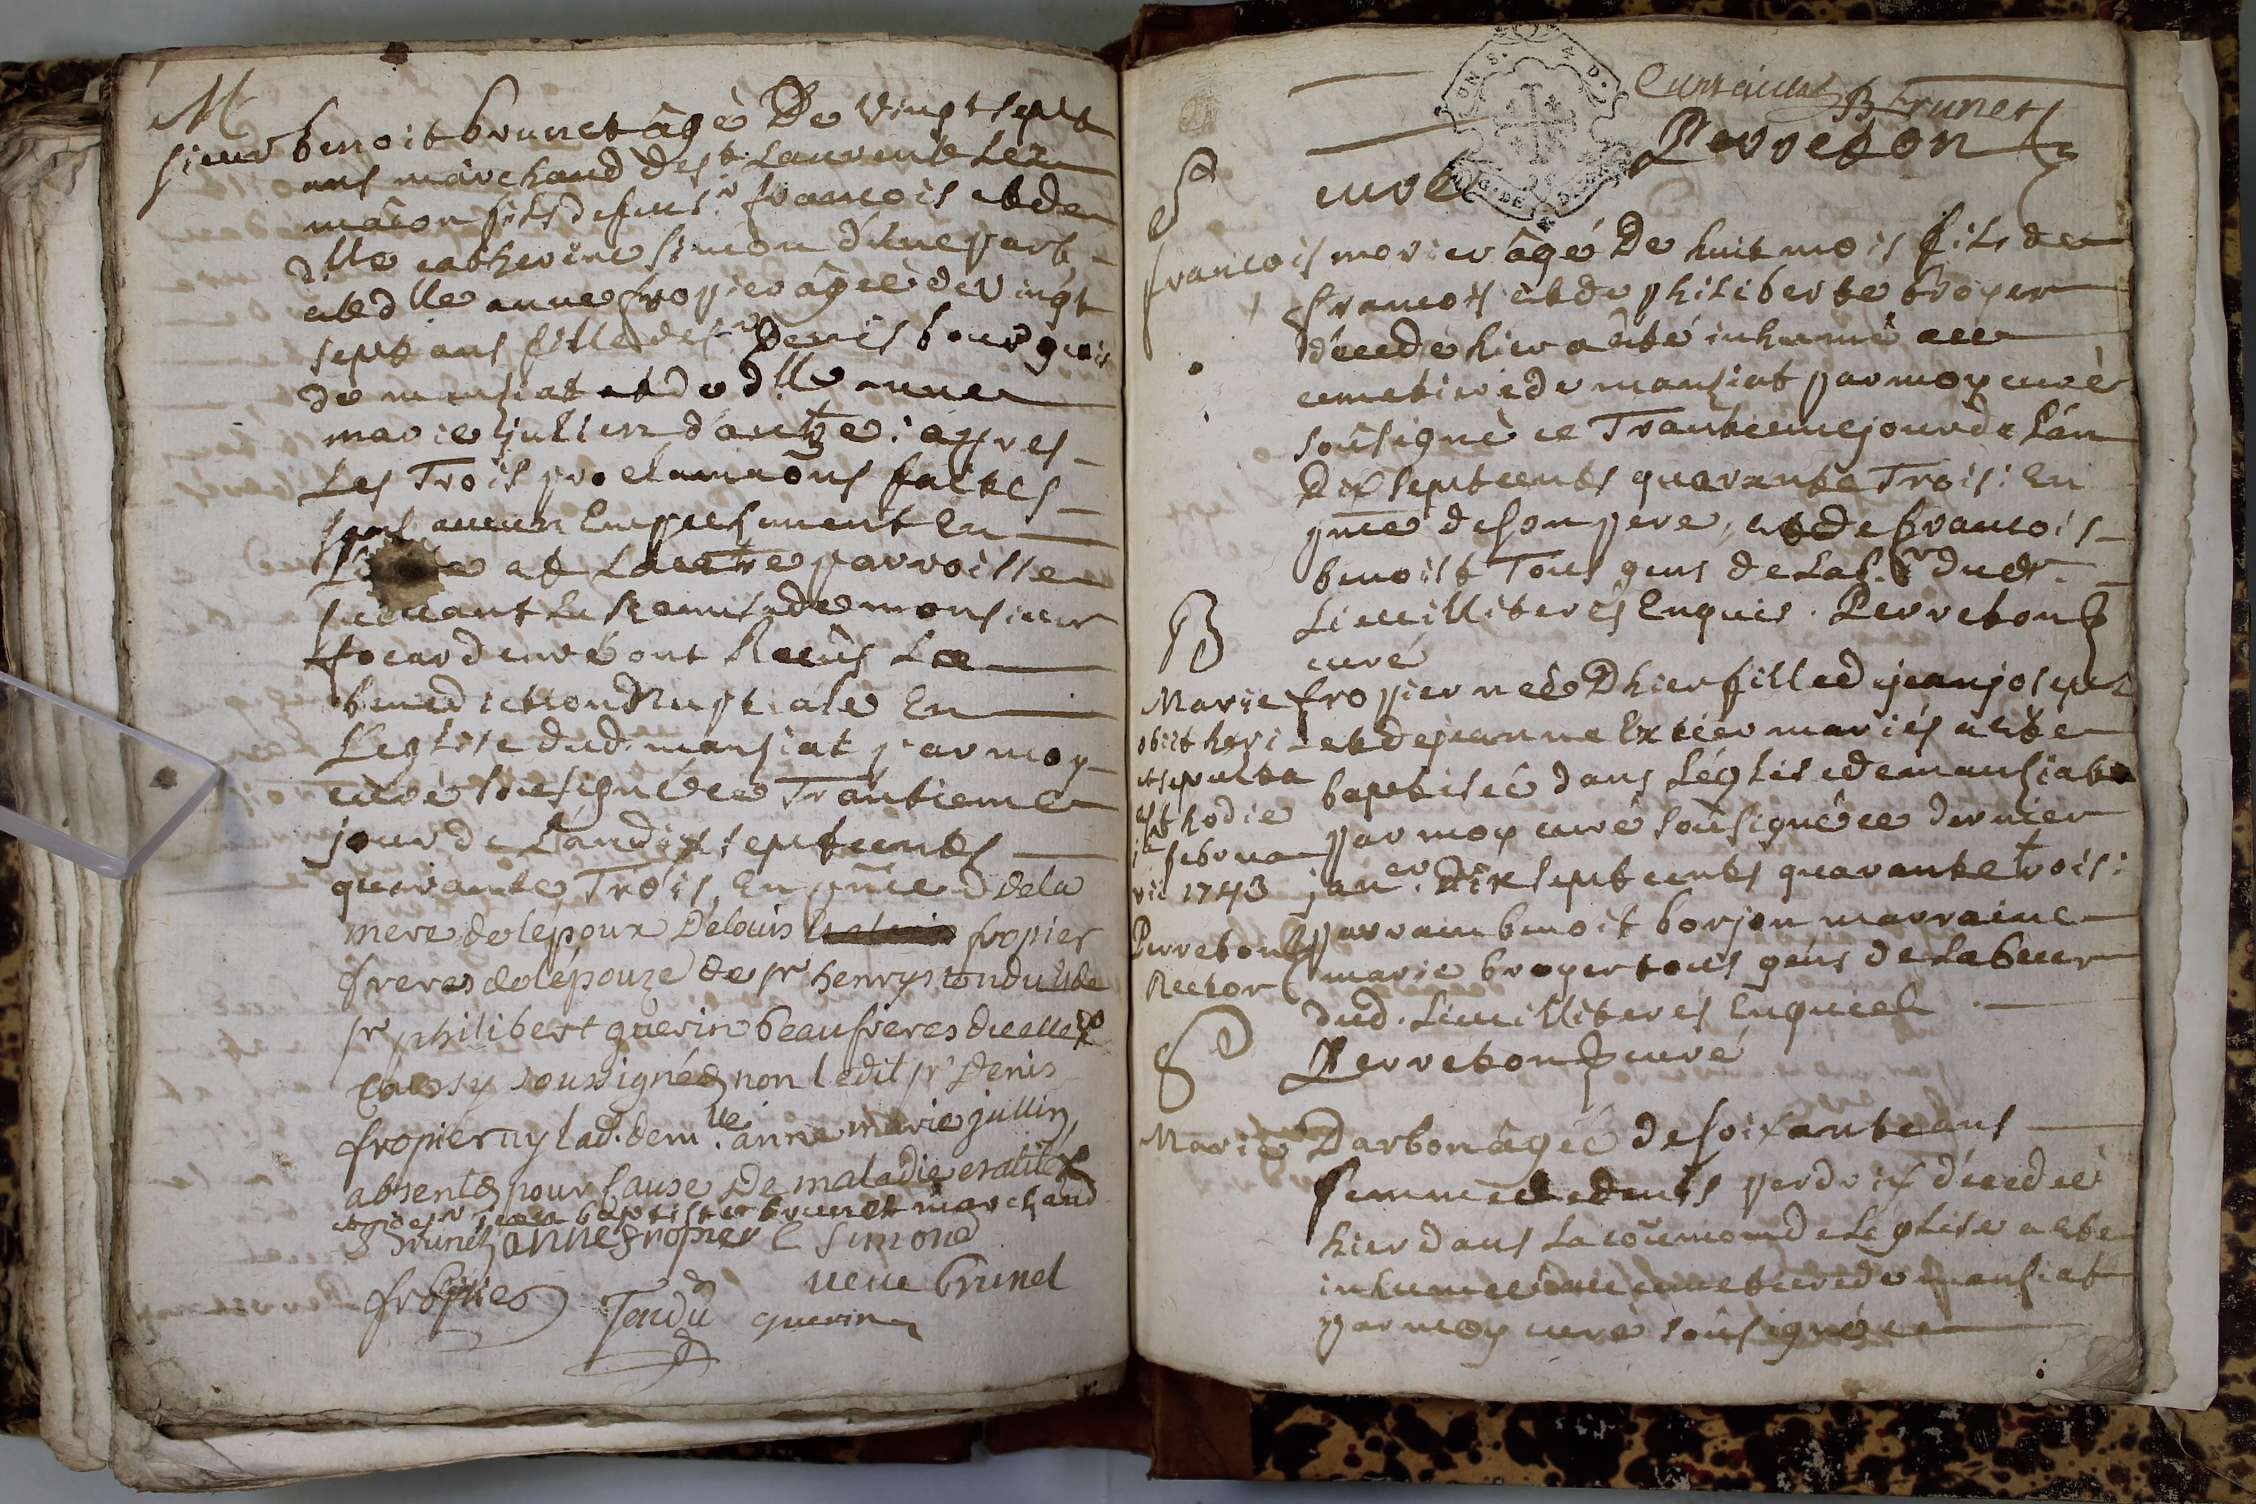 M
sieur benoit brunet âgé De vingt sept
ans marchand de st. Laurent Lez
mâcon fils de feu sr. francois et de
dlle catherine simon d'une part
et dlle anne fropier âgée de vingt
sept ans fille de sr Denis bourgois
de manziat et de dlle anne
marie jullien d'autre : apres
Les Trois proclamaons faittes
sans aucun Empechement En
et Lautre parroisse
suivant La Remise de monsieur
focard curé ont Receus La
benediction Nuptiale En
L'eglise dud. manziat par moy
curé sousigné ce Trantieme
jour de L'an dix sept cents
quarante Trois, En pnce de la
mere de lépoux De louis fropier
freres de lépouze de sr henry tondu et de
sr philibert guerin beaufreres
soussignés non ledit sr Denis
fropier ny lad. demlle. anne marie jullin
absents pour cause de maladie
et de sr jean baptiste brunet marchand
B Brunet anne fropier C simone
veue brunet
fropier Tondu guerin
B Brunet
Perreton
curé
S
francois morier âgé De huit mois fils de
francois et de philiberte broyer
décédé hier a esté inhumé au
cemetiere de manziat par moy curé
sousigné ce Trantieme jour de L'an
Dix sept cents quarante Trois : En
pnce de son pere, et de francois
benoist Tous gens de Lab.r dud.
Lieu illiterés Enquis. Perreton
curé
B
Marie fropier née D'hier fille de jean joseph
et de jeanne Extier mariés a esté
baptisée dans L'église de manziat
par moy curé sousigné ce dernier
janer. Dix sept cents quarante trois :
parrain benoit borjon marraine
marie broyer tous gens de Labeur
dud. Lieu illiterés Enquis
Perreton curé
obiit heri
et sepulta
est hodie
1a februa
rii 1743
Perreton
Rector
S
Marie Darbon âgée de soixante ans
femme de denis perdrix décédée
hier dans La coũmion de L'eglise a esté
inhumée au cemetiere de manziat
par moy curé sousigné ce